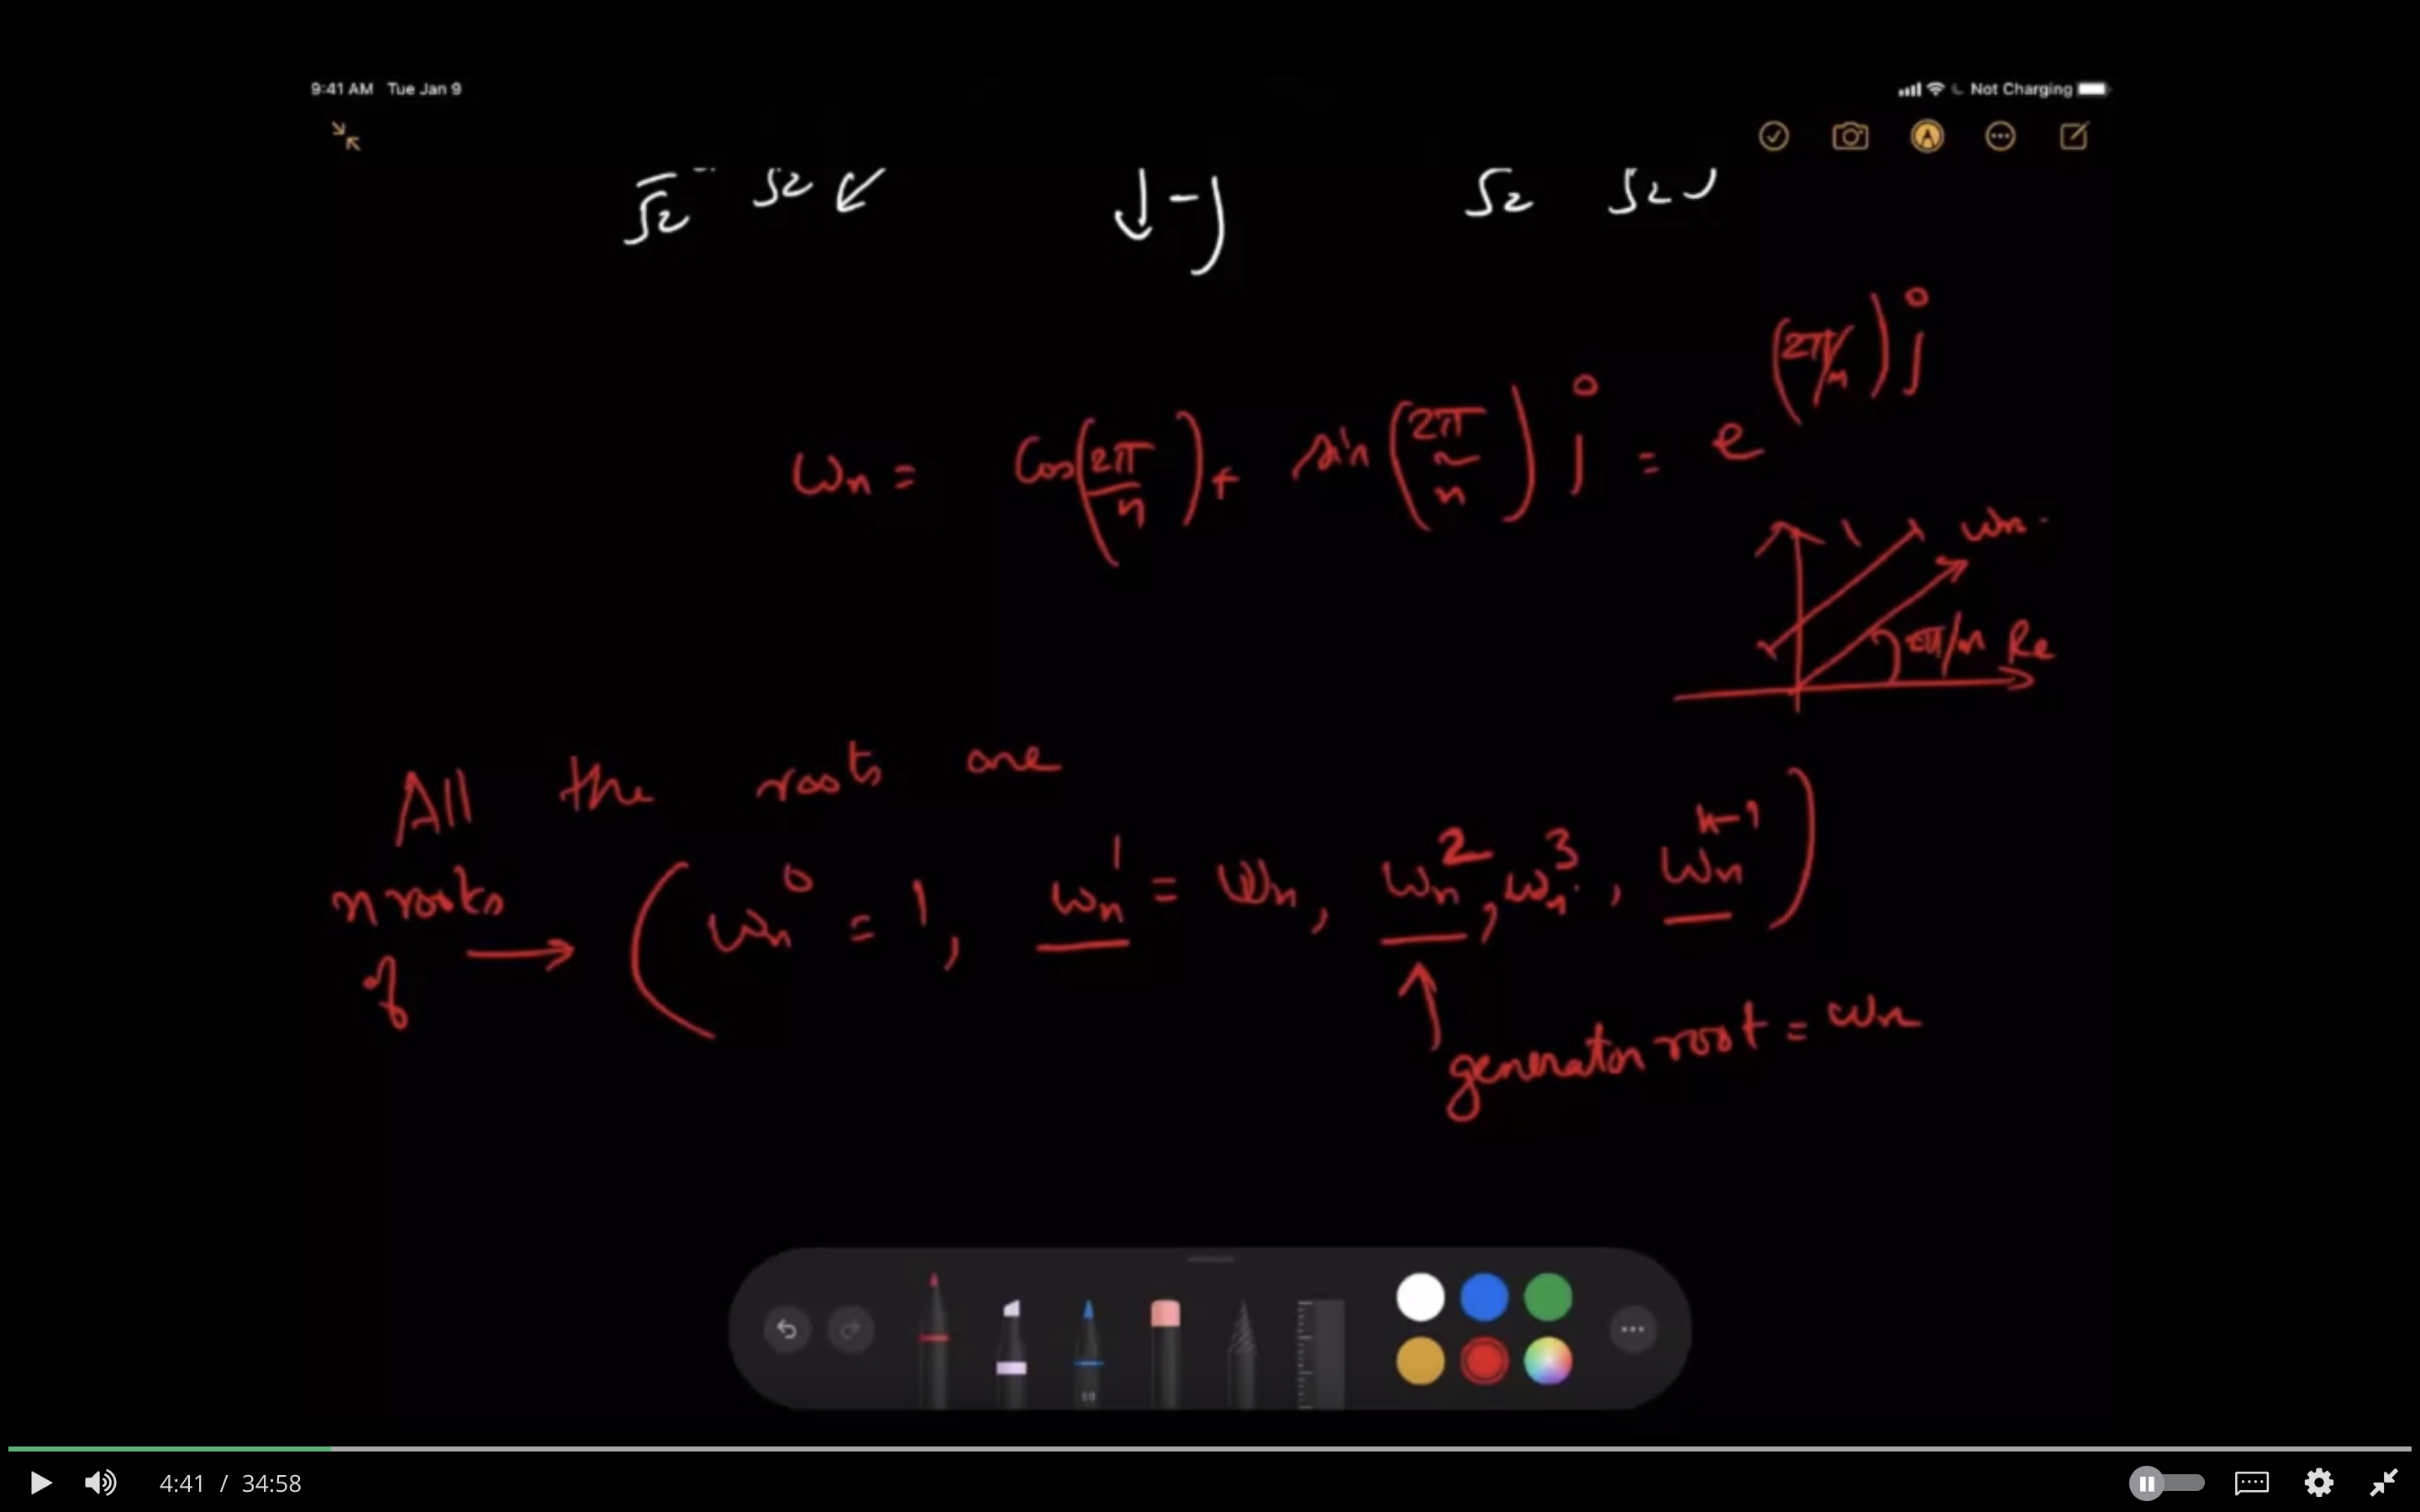 9:41 AM Tue Jan 9
Not Charging
√2 √2
-j
√2 √2
ωn = Cos(2π/n) + sin(2π/n) j = e^(2π/n)j
ωn
2π/n Re
All the roots are
n roots of → (ωn^0 = 1, ωn^1 = ωn, ωn^2, ωn^3, ωn^n-1)
generator root = ωn
50
4:41 / 34:58